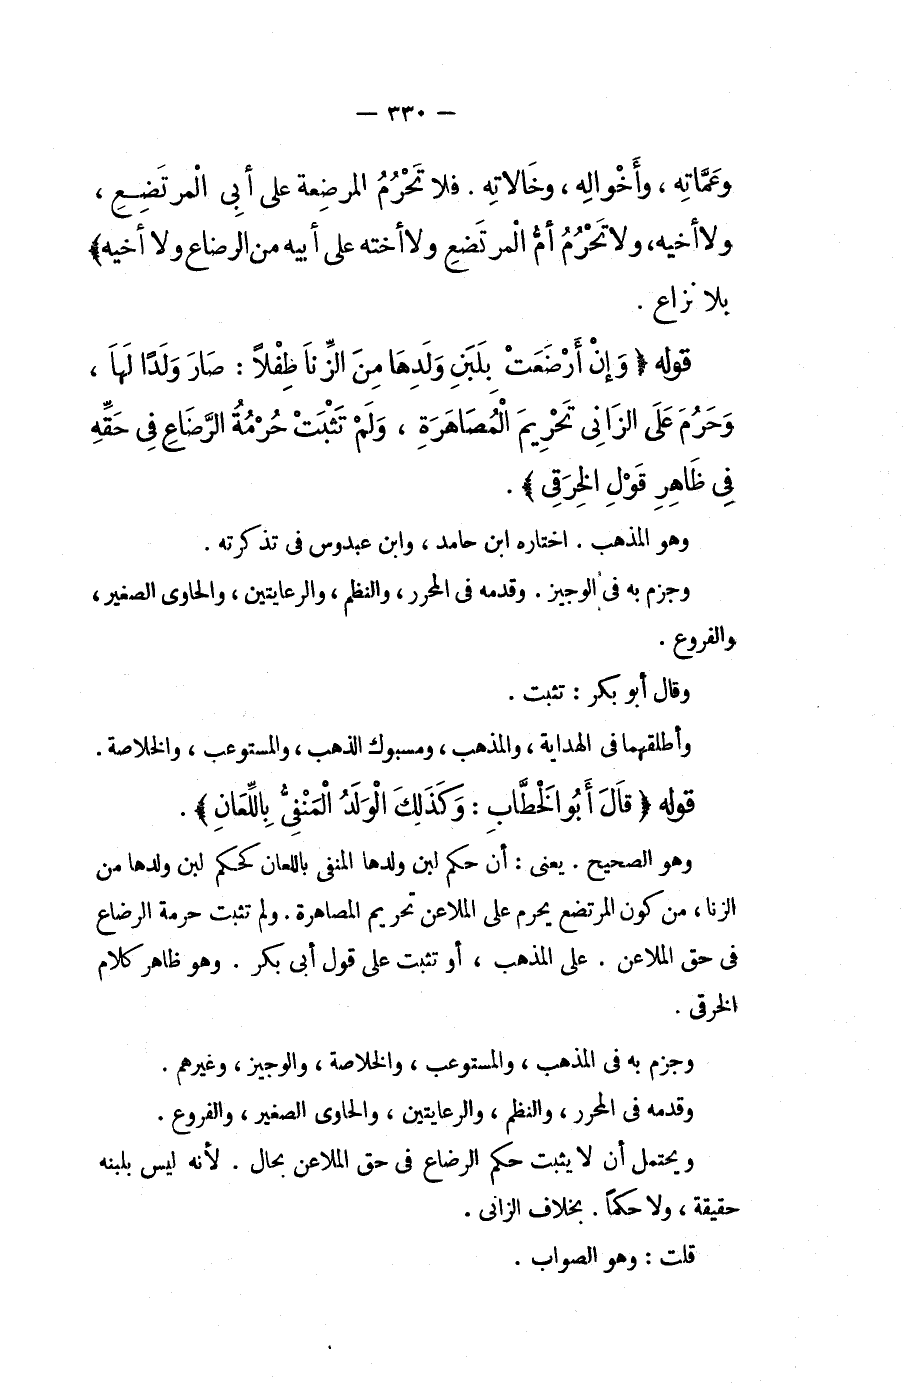 — ٣٣٠ —
وعَمَّاتِهِ ، وأَخْوالِهِ ، وخَالاتِهِ . فلا تَحْرُمُ المرضِعة على أبِى الْمرتَضِعِ ،
ولا أخيه، ولا تَحْرُمُ أمُّ الْمرتَضعِ ولا أخته على أبيه من الرضاع ولا أخيه﴾
بلا نزاع .
قوله ﴿ وَإِنْ أَرْضَعَتْ بِلَبَنِ وَلَدِهَا مِنَ الزِّنَا طِفْلاً : صَارَ وَلَدًا لَهَا ،
وَحَرُمَ عَلَى الزَانِى تَحْرِيمَ الْمُصَاهَرَةِ ، وَلَمْ تَثْبَتْ حُرْمُةُ الرَّضَاعِ فِى حَقِّهِ
فِى ظَاهِرِ قَوْلِ الْخِرَقِى ﴾ .
وهو المذهب . اختاره ابن حامد ، وابن عبدوس فى تذكرته .
وجزم به فى الوجيز . وقدمه فى المحرر ، والنظم ، والرعايتين ، والحاوى الصغير ،
والفروع .
وقال أبو بكر : تثبت .
وأطلقهما فى الهداية ، والمذهب ، ومسبوك الذهب ، والمستوعب ، والخلاصة .
قوله ﴿ قاَلَ أَبُو الْخَطَّابِ : وَكَذَلِكَ الْوَلَدُ الْمَنْفِىُّ بِاللِّعَانِ ﴾ .
وهو الصحيح . يعنى : أن حكم لبن ولدها المنفى باللعان كحكم لبن ولدها من
الزنا ، من كون المرتضع يحرم على الملاعن تحريم المصاهرة . ولم تثبت حرمة الرضاع
فى حق الملاعن . على المذهب ، أو تثبت على قول أبى بكر . وهو ظاهر كلام
الخرقى .
وجزم به فى المذهب ، والمستوعب ، والخلاصة ، والوجيز ، وغيرهم .
وقدمه فى المحرر ، والنظم ، والرعايتين ، والحاوى الصغير ، والفروع .
ويحتمل أن لا يثبت حكم الرضاع فى حق الملاعن بحال . لأنه ليس بلبنه
حقيقة ، ولا حكماً . بخلاف الزانى .
قلت : وهو الصواب .